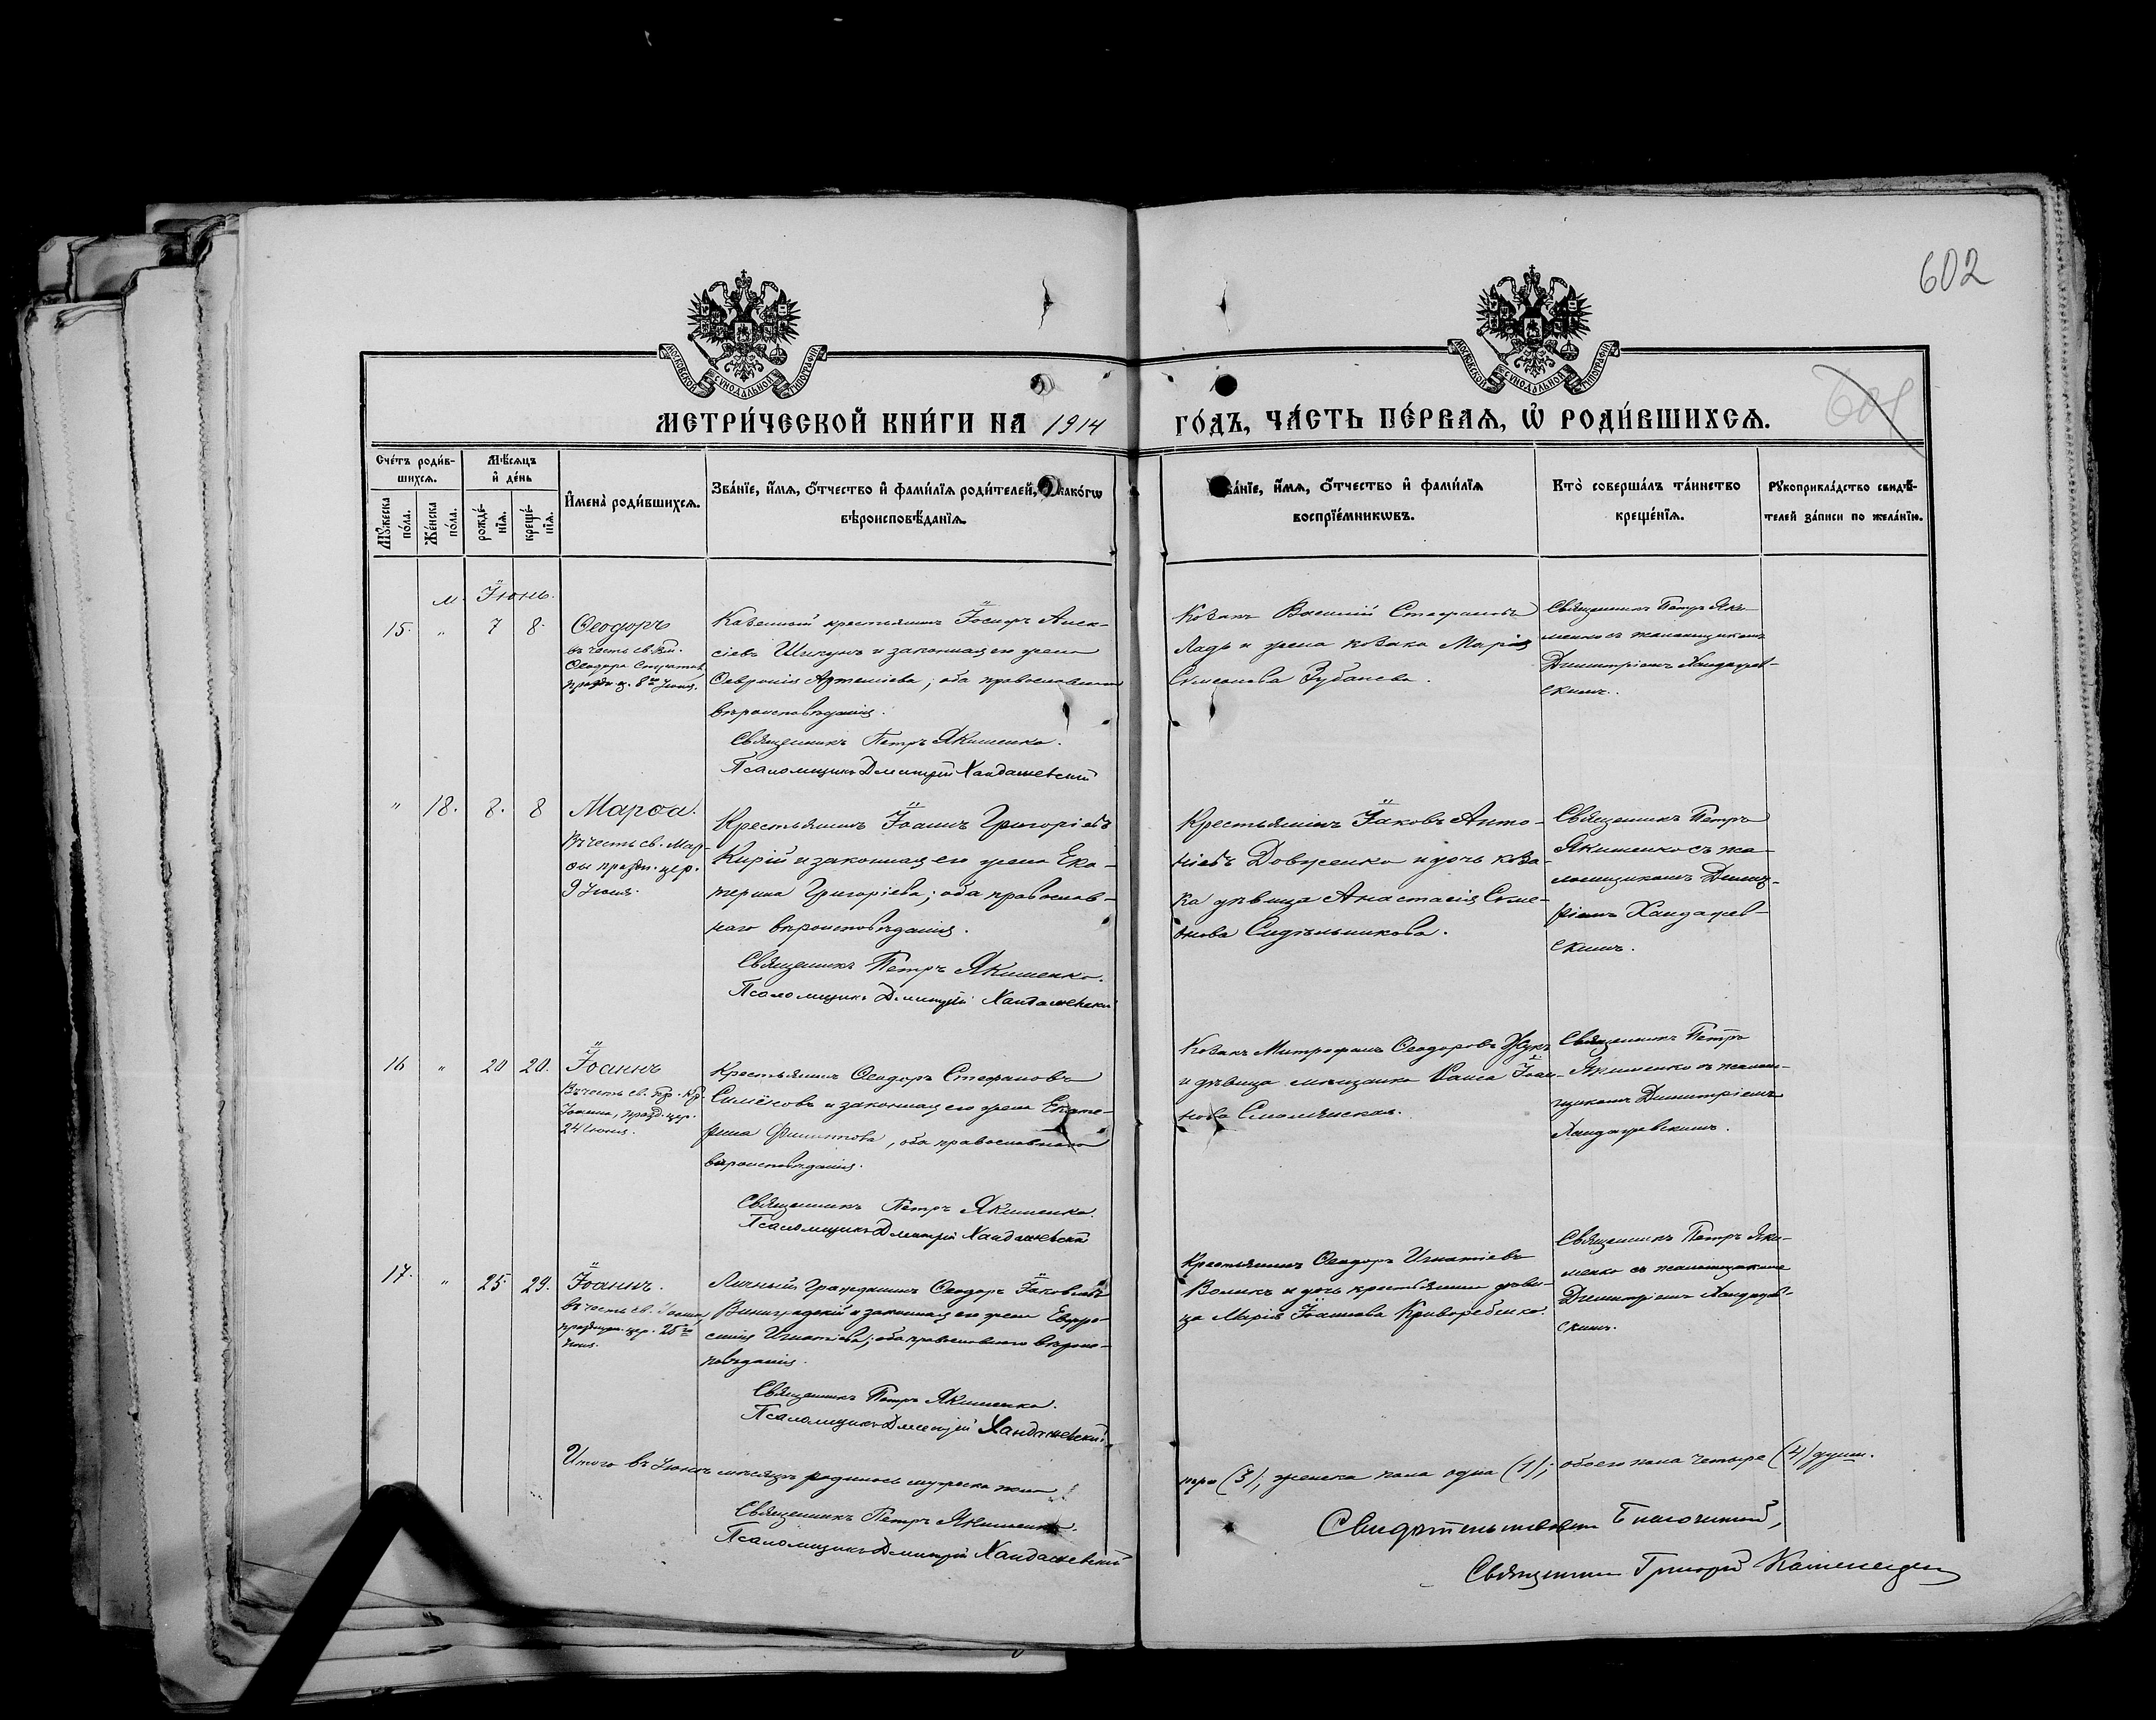 602
МОСКОВСКОЙ СУНОДАЛЬНОЙ ТИПОГРАФІИ
МОСКОВСКОЙ СУНОДАЛЬНОЙ ТИПОГРАФІИ
МЕТРИ́ЧЕСКОЙ КНИ́ГИ НА 1914
ГО́ДЪ, ЧА́СТЬ ПЕ́РВАЯ, Ѽ РОДИ́ВШИХСЯ.
Сче́тъ роди́в-
шихся.
Мꙋ́жеска по́ла.
Же́нска по́ла.
Мѣ́сяцъ
и҆ де́нь
рожде́-
нїя.
креще́-
нїя.
И҆мена̀ роди́вшихся.
Зва́нїе, и҆́мя, ѻ҆́тчество и҆ фами́лїя роди́телей, какогѡ
вѣроисповѣ́данїя.
ва́нїе, и҆́мя, ѻ҆́тчество и҆ фами́лїя
воспрїе́мникѡвъ.
Кто̀ соверша́лъ та́инство
креще́нїя.
Рꙋкоприкла́дство свидѣ́-
телей за́писи по жела́нїю.
м. Іюнь.
15. " 7 8.
Ѳеодоръ
въ честь св. Вм.
Ѳеодора Стратил.
праздн. ц. 8го Іюня.
Казенный крестьянинъ Іосифъ Алек-
сіевъ Шикунъ и законная его жена
Февронія Артеміева; оба православнаго
вѣроисповѣданія.
Священникъ Петръ Якименко.
Псаломщикъ Дмитрій Хандажевскій
Козакъ Василій Стефановъ
Ладъ и жена козака Марія
Симеонова Зубанева.
Священникъ Петръ Яки-
менко съ псаломщикомъ
Димитріемъ Хандажев-
скимъ.
" 18. 8. 8
Марѳа.
Въ честь св. Мар-
ѳы праздн. цер.
9 Іюня.
Крестьянинъ Іоаннъ Григоріевъ
Кирій и законная его жена Ека-
терина Григоріева; оба православ-
наго вѣроисповѣданія.
Священникъ Петръ Якименко.
Псаломщикъ Дмитрій Хандажевскій
Крестьянинъ Іаковъ Анто-
ніевъ Довженко и дочь коза-
ка дѣвица Анастасія Симе-
онова Сидѣльникова.
Священникъ Петръ
Якименко съ пса-
ломщикомъ Димит-
ріемъ Хандажев-
скимъ.
16 " 20 20.
Іоаннъ
Въ честь св. пр. Кр.
Іоанна, празд. цер.
24 Іюня.
Крестьянинъ Ѳеодоръ Стефановъ
Симёновъ и законная его жена Екате-
рина Филиппова, оба православнаго
вѣроисповѣданія.
Священникъ Петръ Якименко.
Псаломщикъ Дмитрій Хандажевскій
Козакъ Митрофанъ Ѳеодоровъ Жукъ
и дѣвица мѣщанка Раиса Іоан-
нова Смолянская.
Священникъ Петръ
Якименко съ псалом-
щикомъ Димитріемъ
Хандажевскимъ.
17. " 25 29.
Іоаннъ.
въ честь св. Іоанна
праздн. цер. 25го
Іюня.
Личный Гражданинъ Ѳеодоръ Іаковлевъ
Виноградскій и законная его жена Евфро-
синія Игнатіева; оба православнаго вѣроис-
повѣданія.
Священникъ Петръ Якименко.
Псаломщикъ Дмитрій Хандажевскій
Крестьянинъ Ѳеодоръ Игнатіевъ
Воликъ и дочь крестьянина дѣви-
ца Марія Іоаннова Криворебенко.
Священникъ Петръ Яки-
менко съ псаломщикомъ
Димитріемъ Хандажев-
скимъ.
Итого въ Іюнѣ мѣсяцѣ родилось мужеска пола
три (3), женска пола одна (1); обоего пола четыре (4) души.
Священникъ Петръ Якименко.
Псаломщикъ Дмитрій Хандажевскій
Свидѣтельствовалъ Благочинный,
Священникъ Григорій